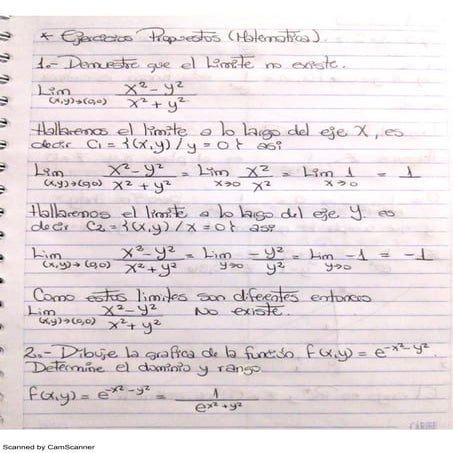 * Ejercicios Propuestos (Matematica).
1.- Demuestre que el Limite no existe.
Lim (x,y)→(0,0) x²-y² / x²+y²
Hallaremos el limite a lo largo del eje X, es
decir C₁ = {(x,y) / y = 0} asi
Lim (x,y)→(0,0) x²-y² / x²+y² = Lim x→0 x² / x² = Lim x→0 1 = 1
Hallaremos el limite a lo largo del eje Y. es
decir C₂ = {(x,y) / x = 0} asi
Lim (x,y)→(0,0) x²-y² / x²+y² = Lim y→0 -y² / y² = Lim y→0 -1 = -1
Como estos limites son diferentes entonces
Lim (x,y)→(0,0) x²-y² / x²+y² No existe.
2.- Dibuje la grafica de la función f(x,y) = e^-x²-y².
Determine el dominio y rango
f(x,y) = e^-x²-y² = 1 / e^x²+y²
CARIBE
Scanned by CamScanner